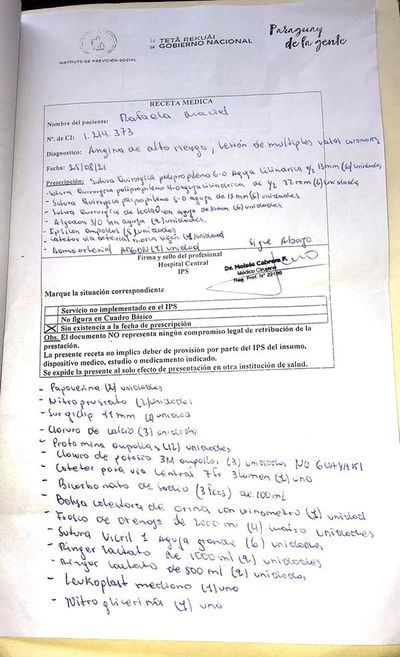 INSTITUTO DE PREVISIÓN SOCIAL
TETÃ REKUÁI
GOBIERNO NACIONAL
Paraguay
de la gente
RECETA MÉDICA
Nombre del paciente: Rafaela
Nº. de CI: 1.214.373
Diagnostico: Angina de alto riesgo, Lesión de multiples vasos
Fecha: 25/08/21
Prescripción: Sutura Quirurgica polipropileno 6-0 Aguja Cilindrica 1/2 13mm (6) unidades
- Sutura Quirurgica polipropileno 4-0 aguja cilindrica de 1/2 22mm (6) unidades
- Sutura Quirurgica polipropileno 5-0 aguja de 17mm (6) unidades
- Sutura Quirurgica de aguja (6) unidades
- Algodon 3/0 aguja (2) unidades
- ampollas (5) unidades
- Cateter via (1) unidad
- ARGON (1) unidad
Sigue Abajo
Firma y sello del profesional
Hospital Central
IPS
Dr. Moisés Cabrera F.
Médico Cirujano
Reg. Prof. Nº
Marque la situación correspondiente
Servicio no implementado en el IPS
No figura en Cuadro Básico
X Sin existencia a la fecha de prescripción
Obs. El documento NO representa ningún compromiso legal de retribución de la
prestación.
La presente receta no implica deber de provisión por parte del IPS del insumo,
dispositivo medico, estudio o medicamento indicado.
Se expide la presente al solo efecto de presentacion en otra institución de salud.
- Papaverina unidades
- Nitroprusiato (2) unidades
- Surgiclip 11mm unidad
- Cloruro de calcio (3) unidades
- Protamina ampollas (12) unidades
- Cloruro de potasio 3M ampollas (3) unidades NO GUAYAKI
- Cateter para via Central 7fr 3 lumen (1) uno
- Bicarbonato de sodio (3) de 100ml
- Bolsa colectora de orina con urinometro (1) unidad
- Frasco de drenaje de 2000 ml (4) cuatro unidades
- Sutura Vicril 1 Aguja grande (6) unidades
- Ringer lactato de 1000 ml (2) unidades
- Ringer lactato de 500 ml (2) unidades
- Leukoplast mediano (1) uno
- Nitroglicerina (1) uno